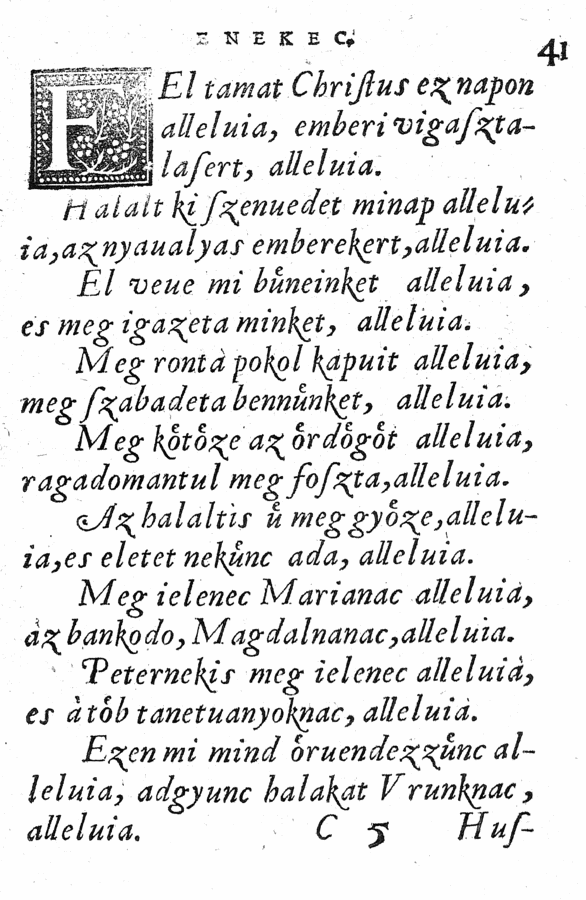 ENEKEC.
41
FEl tamat Chriſtus ez napon
alleluia, emberi vigaſzta-
laſert, alleluia.
Halalt ki ſzenuedet minap allelu⸗
ia, az nyaualyas emberekert, alleluia.
El veue mi bůneinket alleluia,
es meg igazeta minket, alleluia.
Meg rontà pokol kapuit alleluia,
meg ſzabadeta bennůnket, alleluia.
Meg kôtôze az ôrdôgôt alleluia,
ragadomantul meg foſzta, alleluia.
Az halaltis ů meg gyôze, allelu-
ia, es eletet nekůnc ada, alleluia.
Meg ielenec Marianac alleluia,
àz bankodo, Magdalnanac, alleluia.
Peternekis meg ielenec alleluià,
es à tôb tanetuanyoknac, alleluià.
Ezen mi mind ôruendezzůnc al-
leluia, adgyunc halakat Vrunknac,
alleluia. C 5 Huſ-